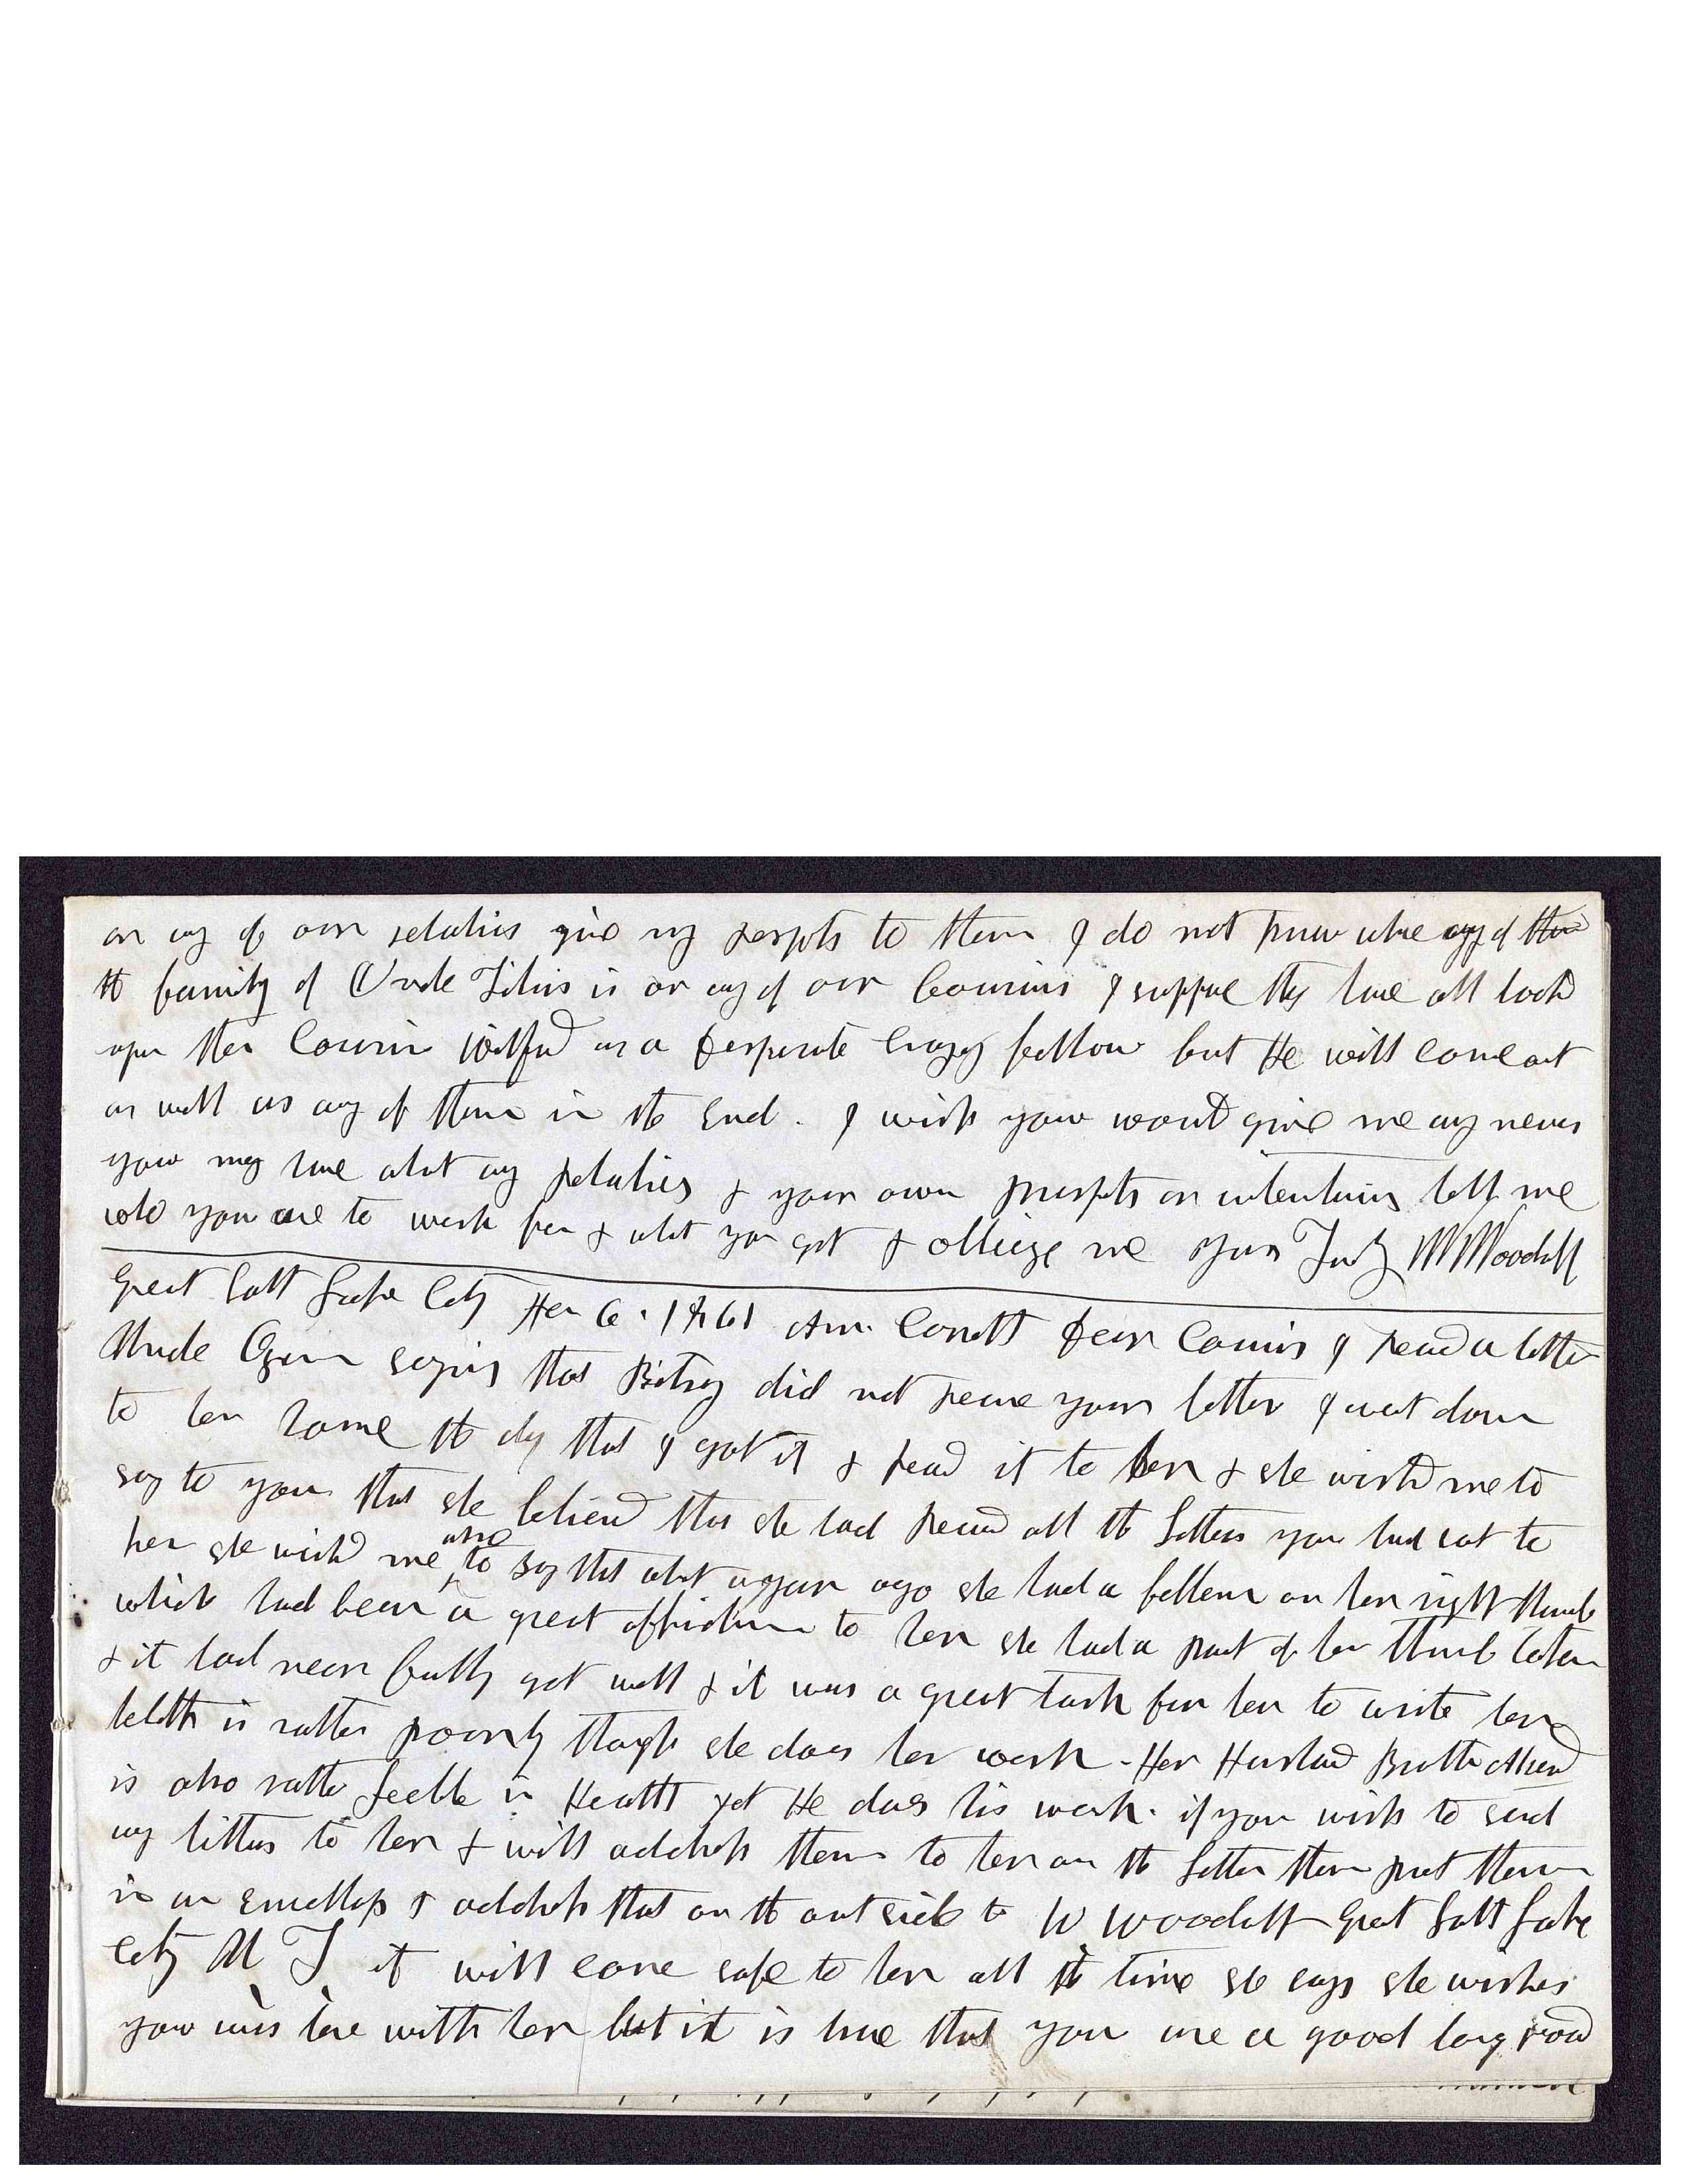 or any of our relatives give my respects to them I do not know whare any of
the family of Uncle Titus is or any of our Cousins I suppose they have all lookd
upon ther Cousin Wilford as a desperate Crazy fellow but He will come out
as well as any of them in the End. I wish you would give me any news
you may have about my relatives & your own prospects or intentions tell me
who you are to work for & what you get & obliege me Yours Truly W Woodruff
Great Salt Lake City 6. 1861 Dear Cousin I recievd a letter
Uncle Ozem saying that Betsey did not receive your letter I went down
to her home the day that I got it & read it to her & she wishd me to
say to you that she believed that she had recievd all the letters you had sent to
her she wishd me also to say that about a year ago she had a fellon on her right thumb
which had been a great affliction to her she had a part of her thumb taken
& it had never fully got well & it was a great task for her to write her
helth is rather poorly though she does her work - Her Husband Brother
is also rather feeble in Health yet He does his work. if you wish to send
any letters to her & will address them to her on the letter then put them
in an envellop & address that on the outside to W Woodruff Great Salt Lake
City U T it will come safe to her all the time she says she wishes
you was here with her but it is true that you are a good long road